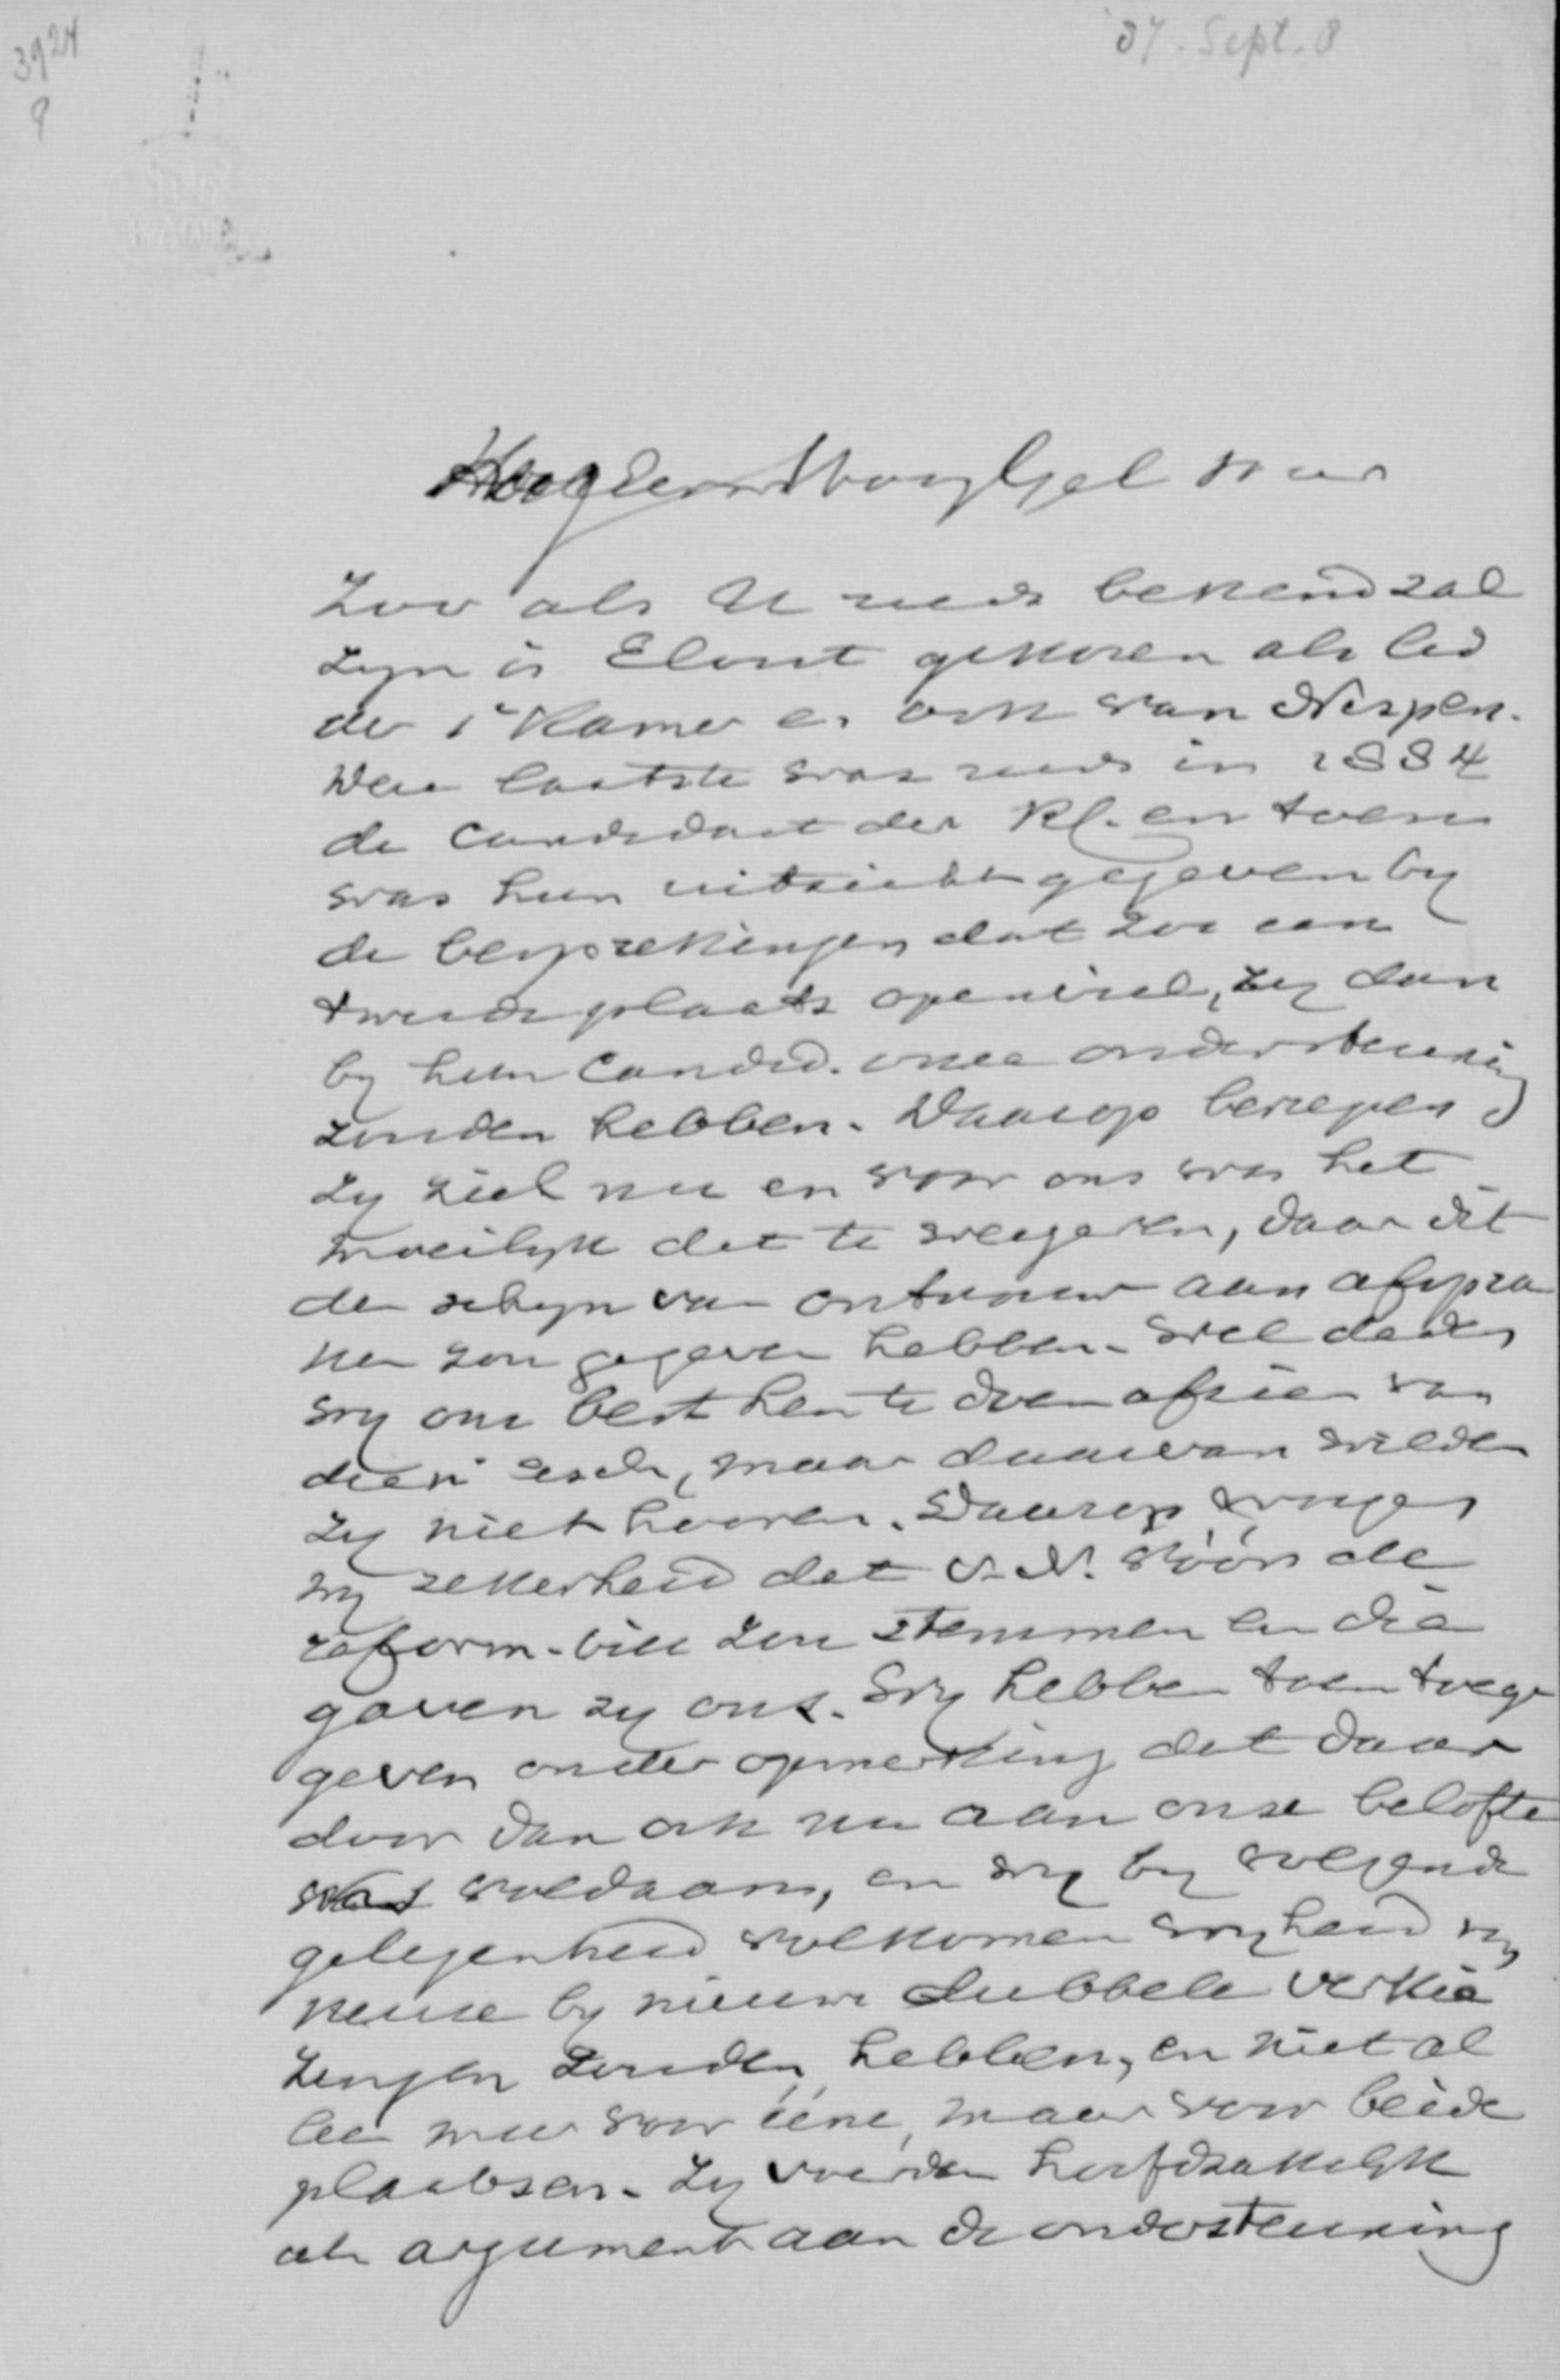 3924
9
87. Sept. 8
HoogGel Heer
Zoo als U reeds bekend zal
zyn is Elout gekozen als lid
der 1e Kamer en ook van Nispen.
Deze laatste was reeds in 1884
de candidaat der Kl. en toen
was hun uitzicht gegeven by
de besprekingen dat zoo een
tweede plaats openviel, zy dan
by hun Candid. onze ondersteuning
zouden hebben. Daarop beriepen
zy zich nu en voor ons was het
moeilyk dat te weigeren, daar dit
den schyn van ontrouw aan afspra
ken zou gegeven hebben. Wel deden
wy ons best hen te doen afzien van
dien eisch, maar daarvan wilden
zy niet hooren. Daarop vroegen
wy zekerheid dat v. N. vóór de
reform-bill zou stemmen en die
gaven zy ons. Wy hebben toen toege
geven onder opmerking dat daar
door dan ook nu aan onze belofte
was voldaan, en wy by volgende
gelegenheid volkomen vryheid v
keuze by nieuwe dubbele verkie
zingen zouden hebben, en niet al
leen meer voor ééne, maar voor beide
plaatsen. Zy voerden hoofdzakelyk
als argument aan de ondersteuning